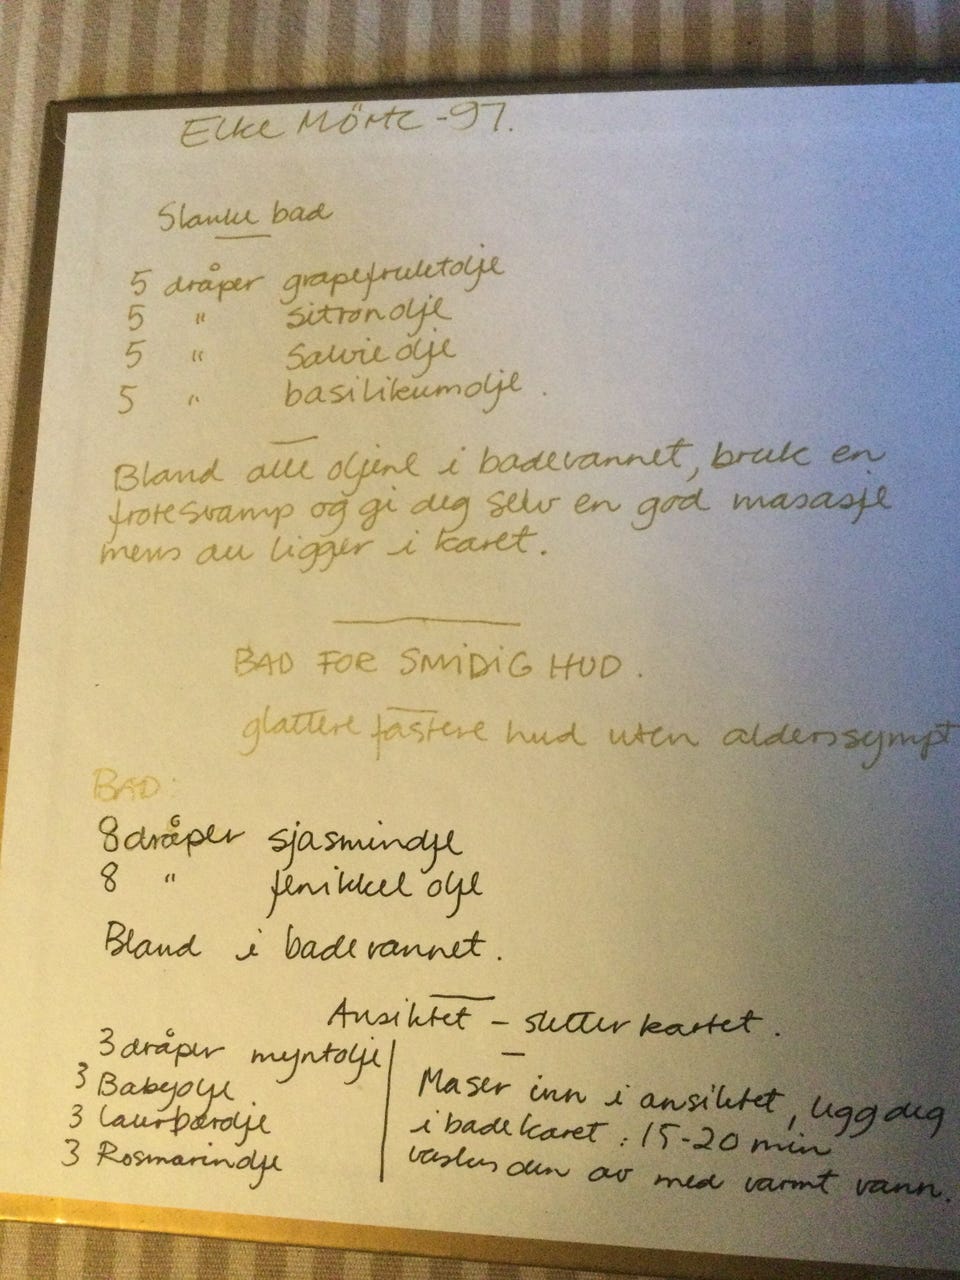 Elke Mörtc -97.
Slanke bad
5 dråper grapefruktolje
5 " sitronolje
5 " Salvie olje
5 " basilikumolje.
Bland alle oljene i badevannet, bruk en
frotesvamp og gi deg selv en god masasje
mens du ligger i karet.
BAD FOR SMIDIG HUD.
glattere fastere hud uten alderssympt
BAD:
8 dråper sjasminolje
8 " fenikkel olje
Bland i badevannet.
Ansiktet - sletter kartet.
3 dråper myntolje
3 Babyolje
3 laurbærolje
3 Rosmarinolje
Maser inn i ansiktet, legg deg
i badekaret: 15-20 min
vaskes den av med varmt vann.